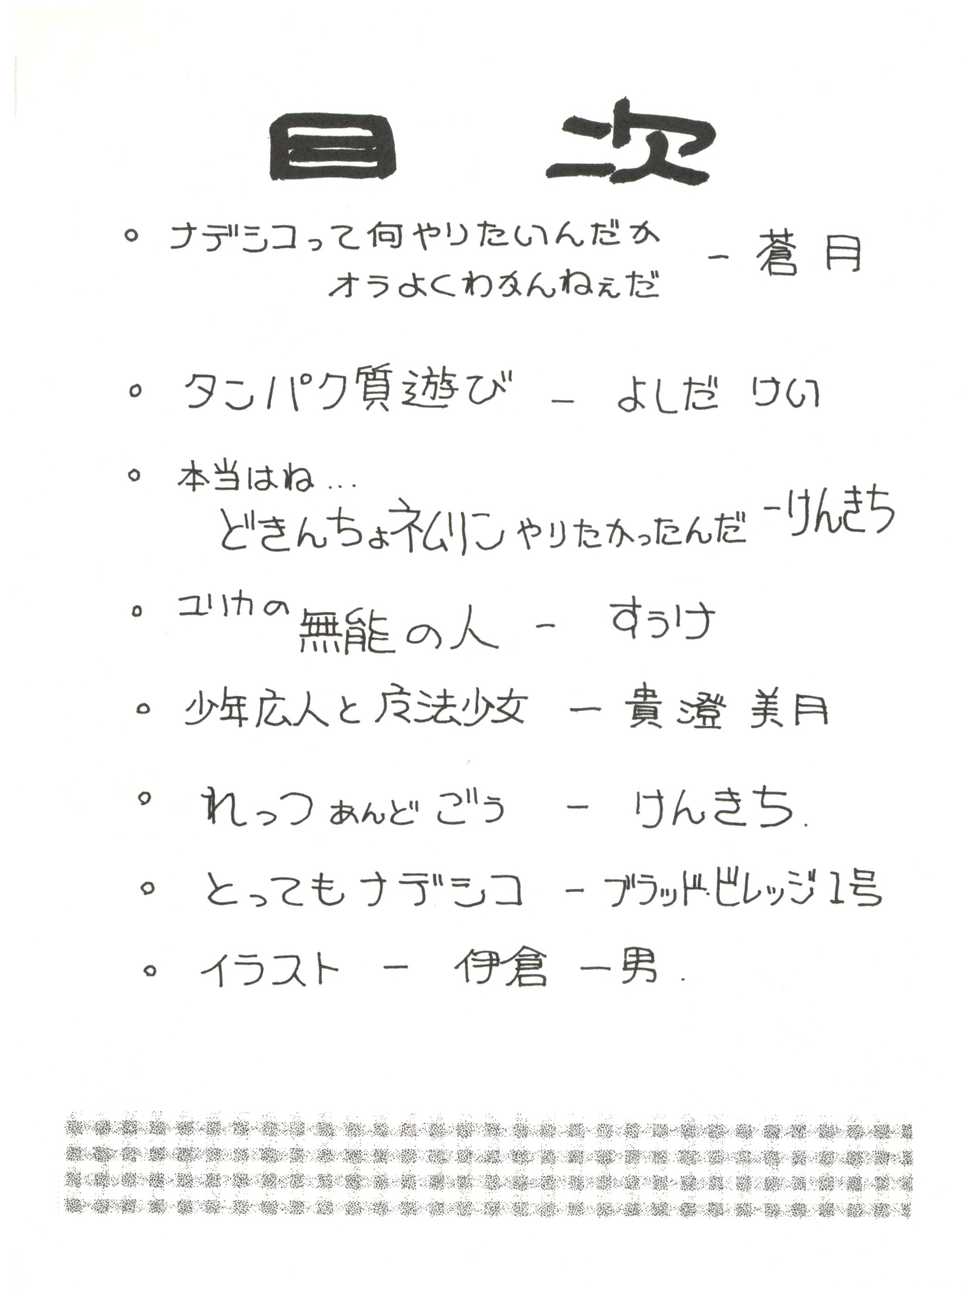 目次
ナデシコって何やりたいんだか
オラよくわかんねぇだ － 蒼月
タンパク質遊び － よしだ けい
本当はね…
どきんちょネムリンやりたかったんだ － けんきち
ユリカの無能の人 － すぅけ
少年広人と魔法少女 － 貴澄 美月
れっつ あんど ごう － けんきち.
とってもナデシコ － ブラッド・ビレッジ1号
イラスト － 伊倉 一男.